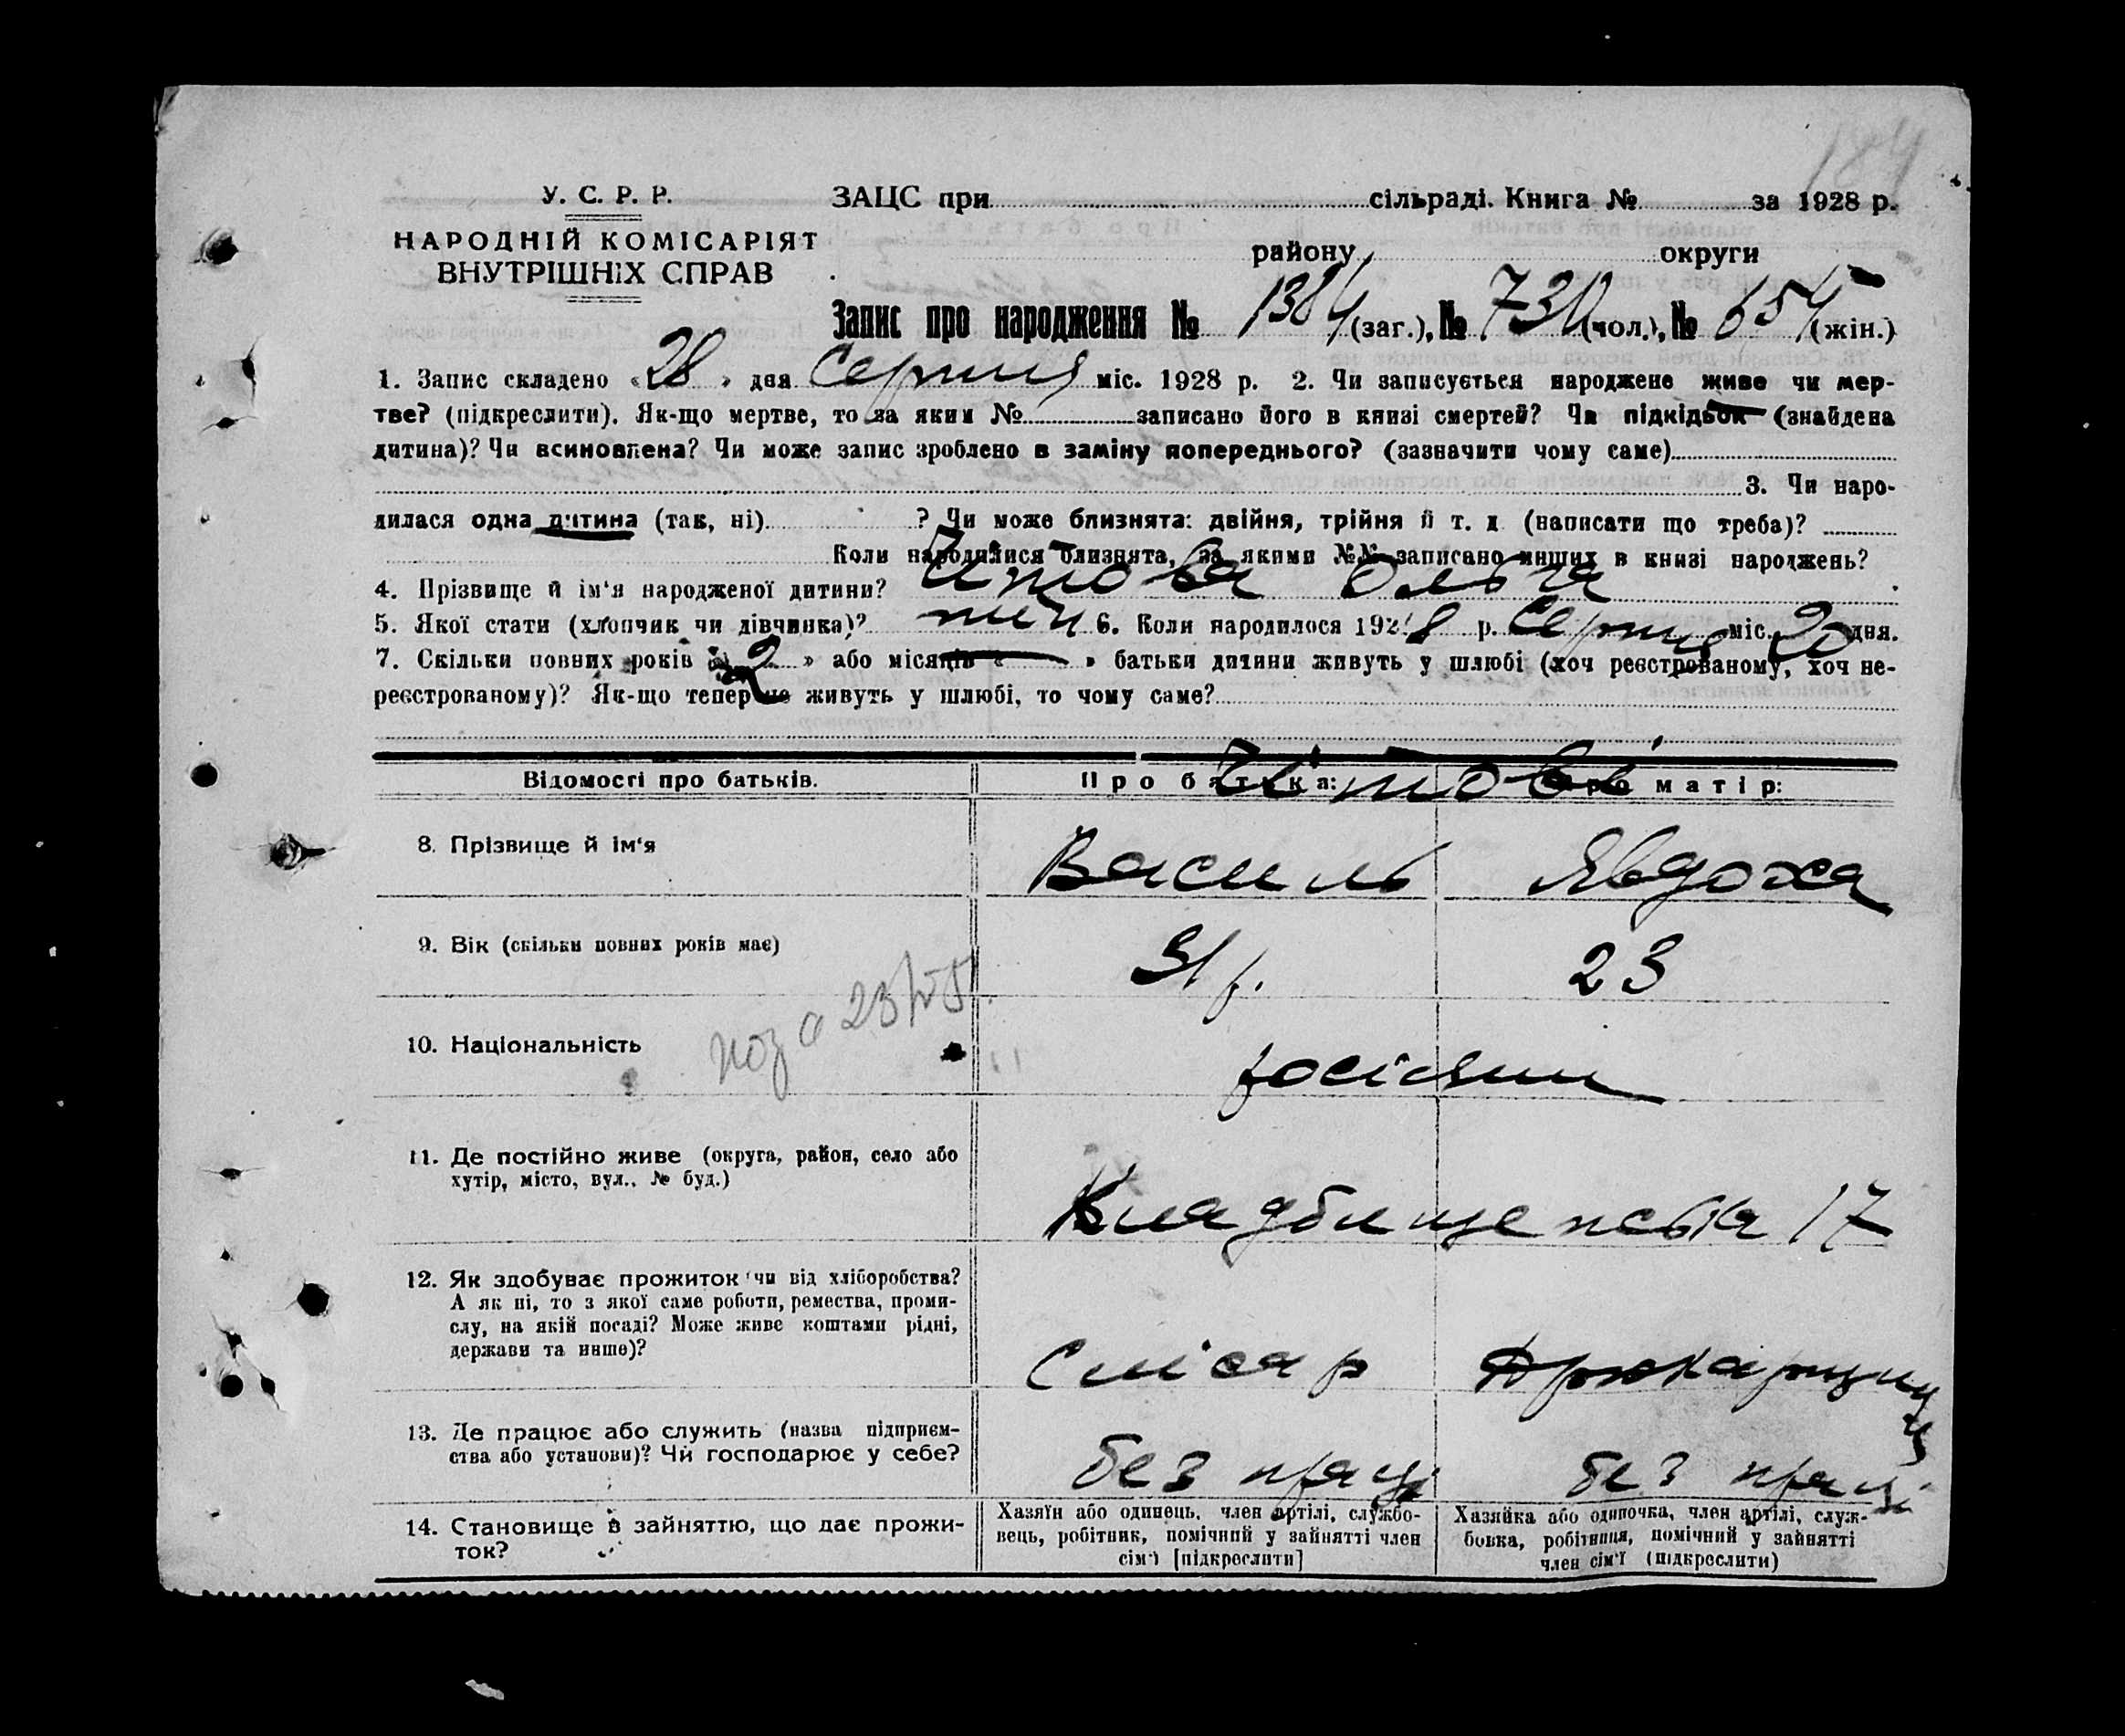 184
У. С. Р. Р.
НАРОДНІЙ КОМІСАРІЯТ
ВНУТРІШНІХ СПРАВ
ЗАЦС при сільраді. Книга № за 1928 р.
району округи
Запис про народження № 1384 (заг.), № 730 (чол.), № 654 (жін.)
1. Запис складено «28» дня Серпня міс. 1928 р. 2. Чи записується народжене живе чи мер-
тве? (підкреслити). Як-що мертве, то за яким № записано його в книзі смертей? Чи підкідьок (знайдена
дитина)? Чи всиновлена? Чи може запис зроблено в заміну попереднього? (зазначити чому саме)
3. Чи наро-
дилася одна дитина (так, ні) ? Чи може близнята: двійня, трійня й т. д (написати що треба)?
Коли народилися близнята, за якими №№ записано инших в книзі народжень?
4. Прізвище й ім'я народженої дитини? Ольга
5. Якої стати (хлопчик чи дівчинка)? жін 6. Коли народилося 1928 р. Серпня міс. 20 дня.
7. Скільки повних років «2» або місяців « » батьки дитини живуть у шлюбі (хоч реєстрованому, хоч не-
реєстрованому)? Як-що тепер не живуть у шлюбі, то чому саме?
Відомості про батьків. Про батька: Про матір:
8. Прізвище й ім'я Василь Явдоха
9. Вік (скільки повних років має) 31 р. 23
10. Національність росіяни
11. Де постійно живе (округа, район, село або
хутір, місто, вул., № буд.)
Кладбищенська 17
12. Як здобуває прожиток чи від хліборобства?
А як ні, то з якої саме роботи, ремества, проми-
слу, на якій посаді? Може живе коштами рідні,
держави та инше)?
Слісар
13. Де працює або служить (назва підприєм-
ства або установи)? Чи господарює у себе?
без праці без праці
14. Становище в зайняттю, що дає прожи-
ток?
Хазяїн або одинець, член артілі, службо-
вець, робітник, помічний у зайнятті член
сім'ї [підкреслити]
Хазяйка або одиночка, член артілі, служ-
бовка, робітниця, помічний у зайнятті
член сім'ї (підкреслити)